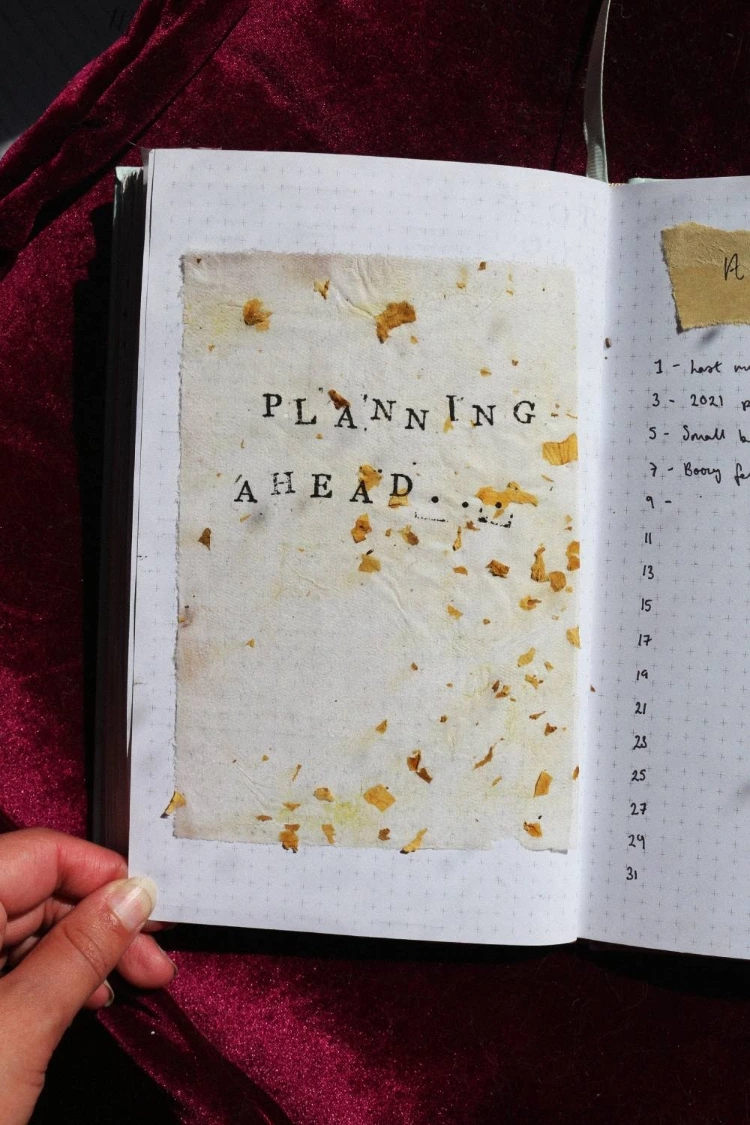 PLANNING
AHEAD...
A
1 - Last
3 - 2021
5 - Small
7 -
9 -
11
13
15
17
19
21
23
25
27
29
31